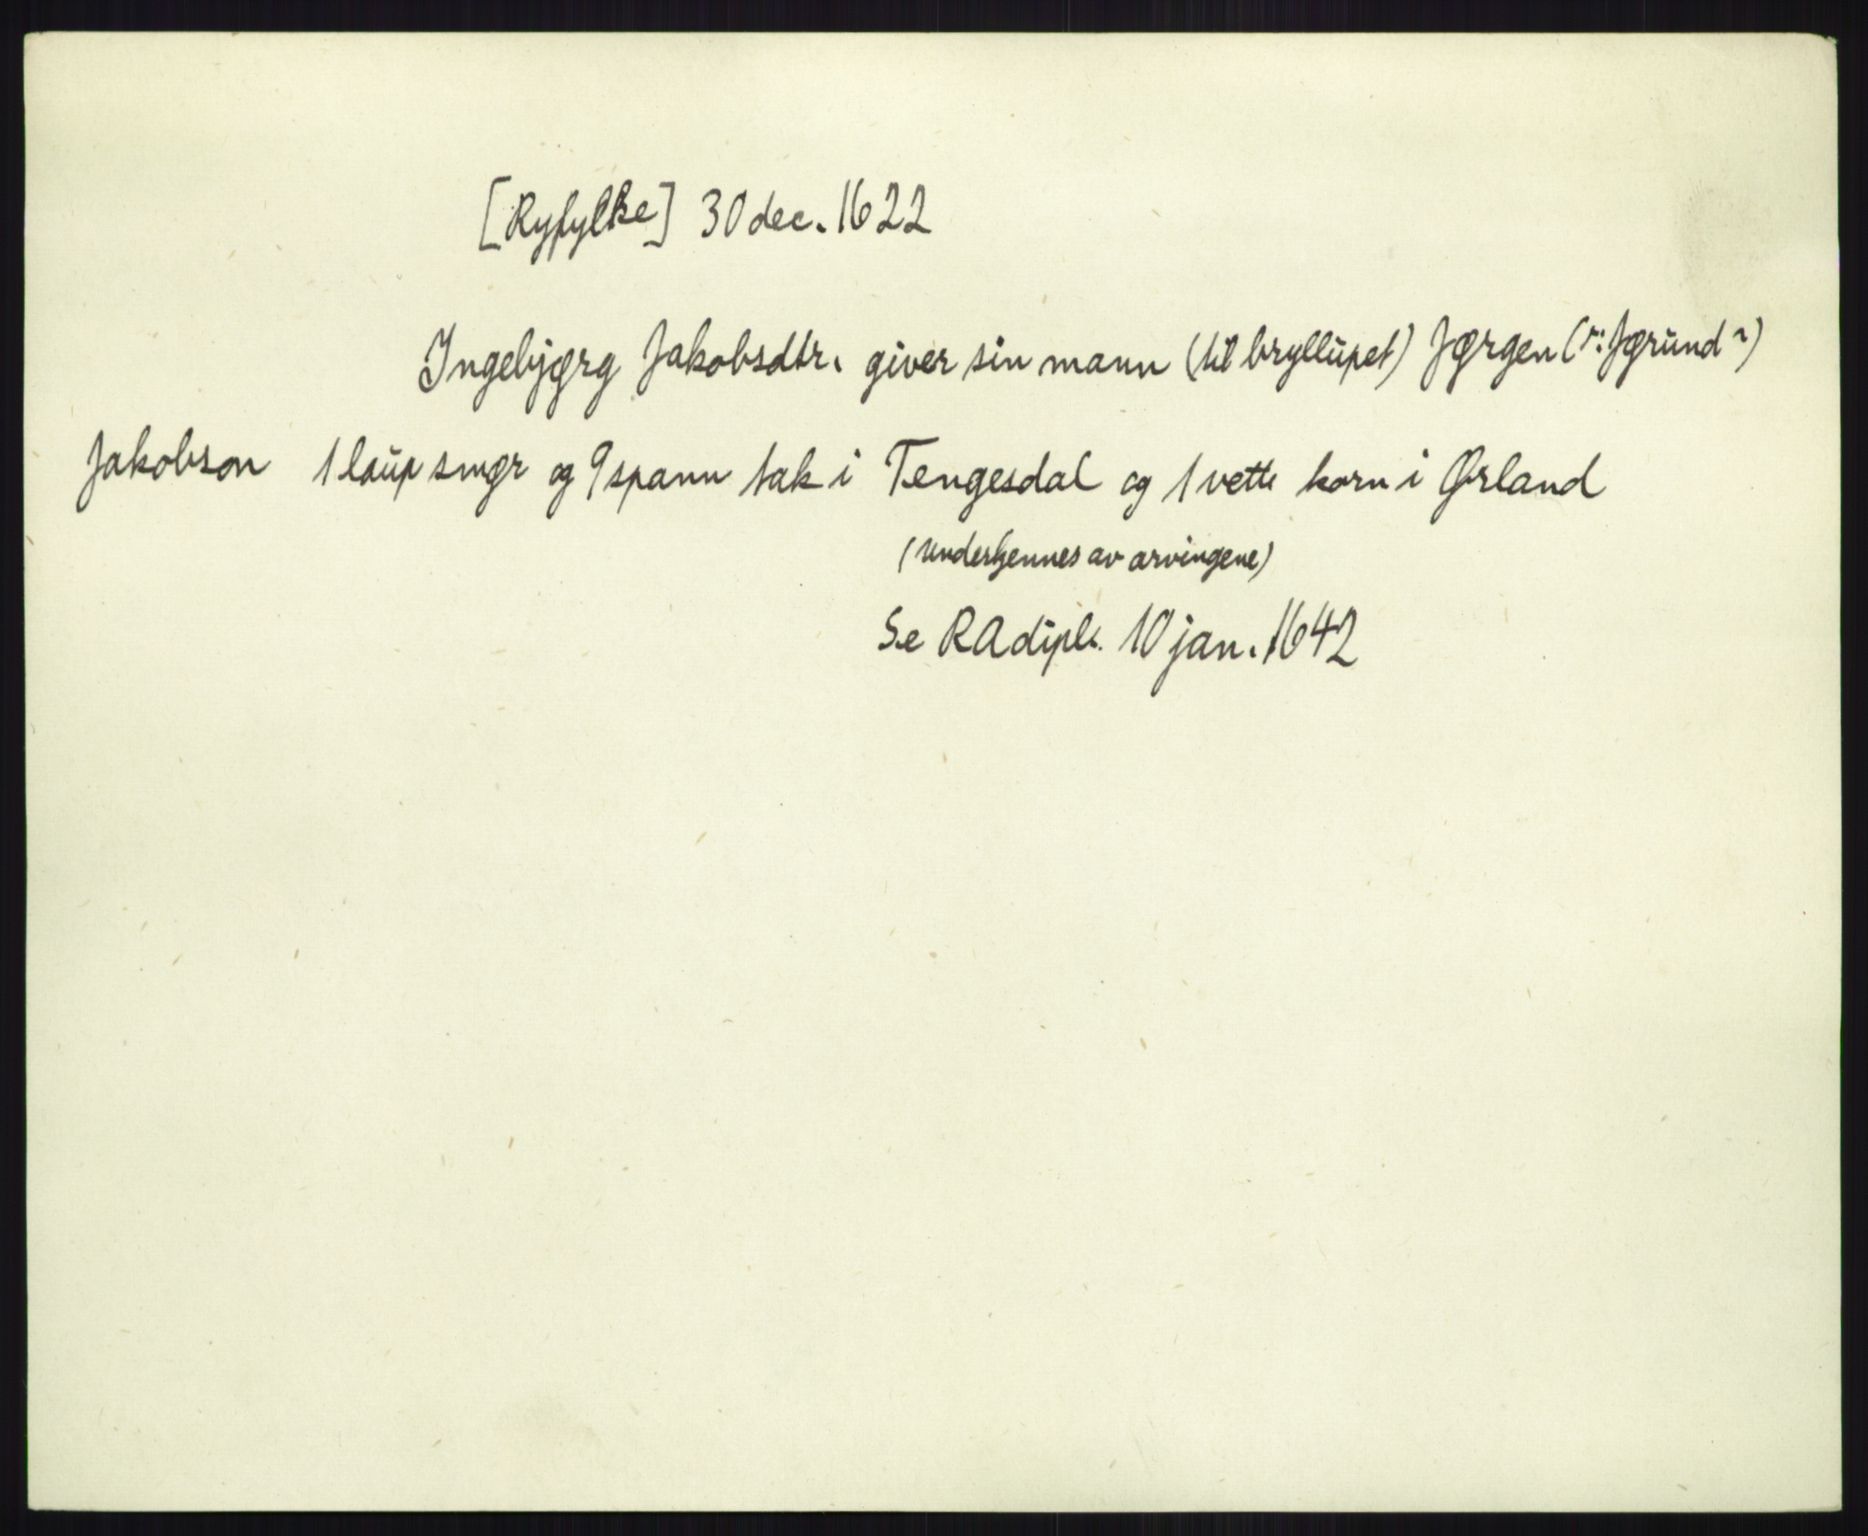 [Ryfylke] 30 dec. 1622
Ingebjørg Jakobsdtr. giver sin mann (til bryllupet) Jørgen (ɔ: Jørund?)
Jakobson 1 laup smør og 9 spann tak i Tengesdal og 1 vette korn i Ørland
(underkjennes av arvingene)
Se RAdipl. 10 jan. 1642